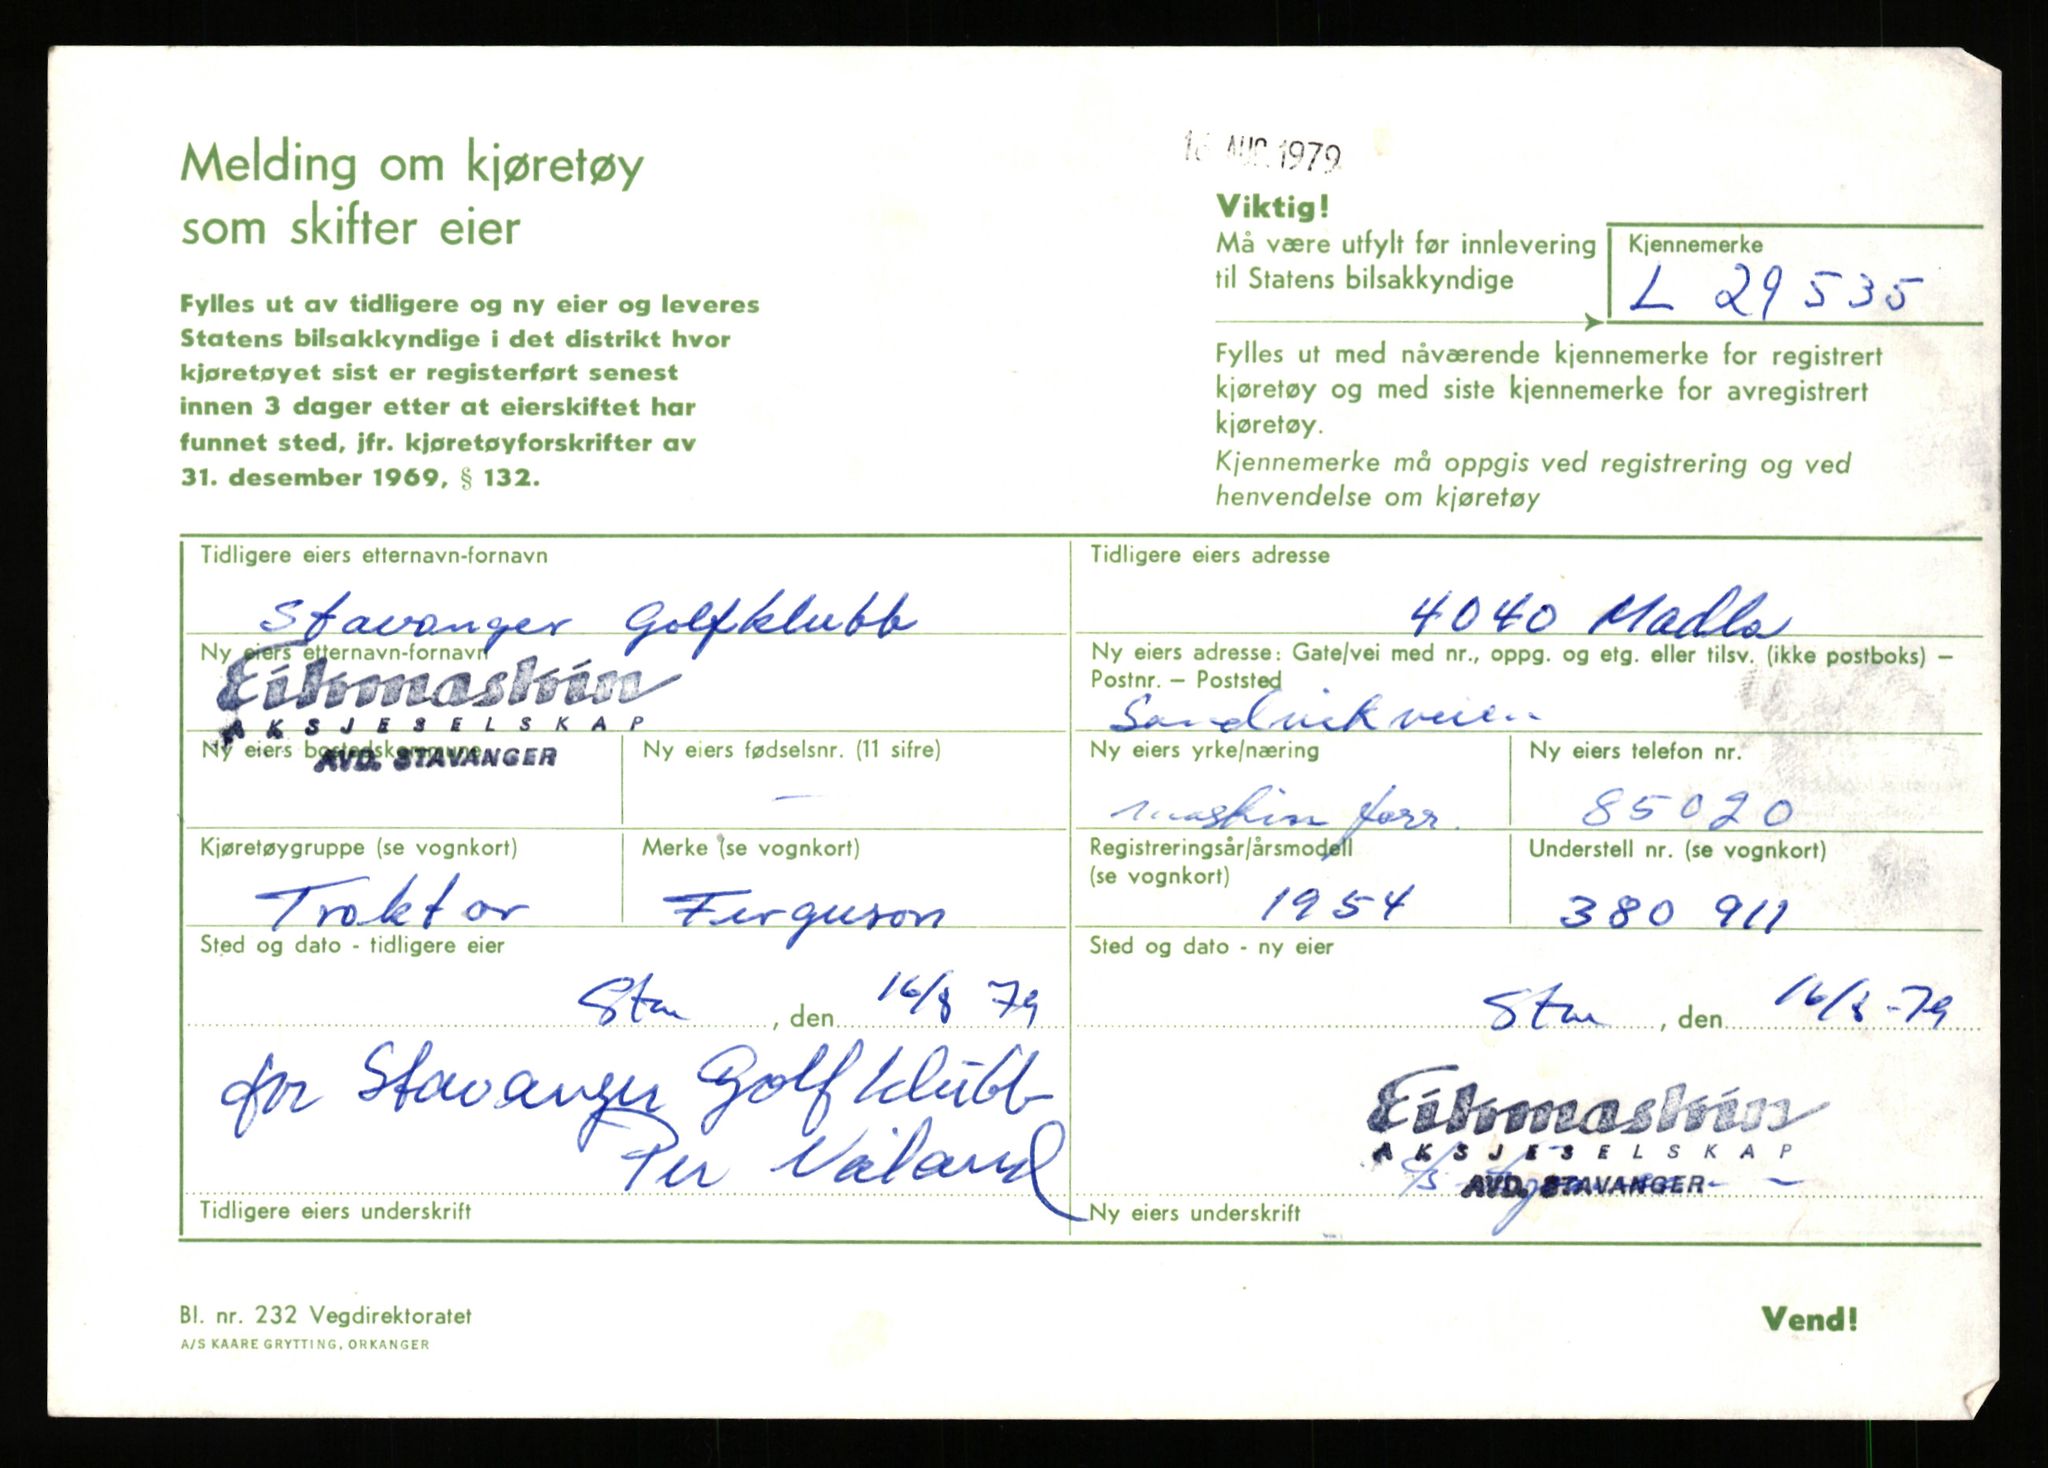 Melding om kjøretøy
som skifter eier
Fylles ut av tidligere og ny eier og leveres
Statens bilsakkyndige i det distrikt hvor
kjøretøyet sist er registerført senest
innen 3 dager etter at eierskiftet har
funnet sted, jfr. kjøretøyforskrifter av
31. desember 1969, § 132.
AUG. 1979
Viktig!
Må være utfylt før innlevering
til Statens bilsakkyndige
Kjennemerke
L 29535
Fylles ut med nåværende kjennemerke for registrert
kjøretøy og med siste kjennemerke for avregistrert
kjøretøy.
Kjennemerke må oppgis ved registrering og ved
henvendelse om kjøretøy
Tidligere eiers etternavn-fornavn
Stavanger Golfklubb
Tidligere eiers adresse
4040 Madla
Ny eiers etternavn-fornavn
Eikmaskin
AKSJESELSKAP
AVD. STAVANGER
Ny eiers adresse: Gate/vei med nr., oppg. og etg. eller tilsv. (ikke postboks) –
Postnr. – Poststed
Sandvikveien
Ny eiers bostedskommune
Ny eiers fødselsnr. (11 sifre)
—
Ny eiers yrke/næring
maskin forr.
Ny eiers telefon nr.
85020
Kjøretøygruppe (se vognkort)
Traktor
Merke (se vognkort)
Ferguson
Registreringsår/årsmodell
(se vognkort)
1954
Understell nr. (se vognkort)
380 911
Sted og dato - tidligere eier
Stv , den 16/8 79
Sted og dato - ny eier
Stv , den 16/8 -79
for Stavanger Golfklubb
Per Våland
Tidligere eiers underskrift
Eikmaskin
AKSJESELSKAP
AVD. STAVANGER
Ny eiers underskrift
Bl. nr. 232 Vegdirektoratet
A/S KAARE GRYTTING, ORKANGER
Vend!